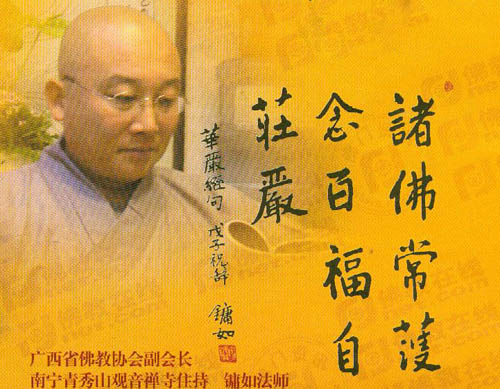 諸佛常護
念百福自
莊嚴
華嚴經句 戊子祝辞 鏞如
广西省佛教协会副会长
南宁青秀山观音禅寺住持 镛如法师